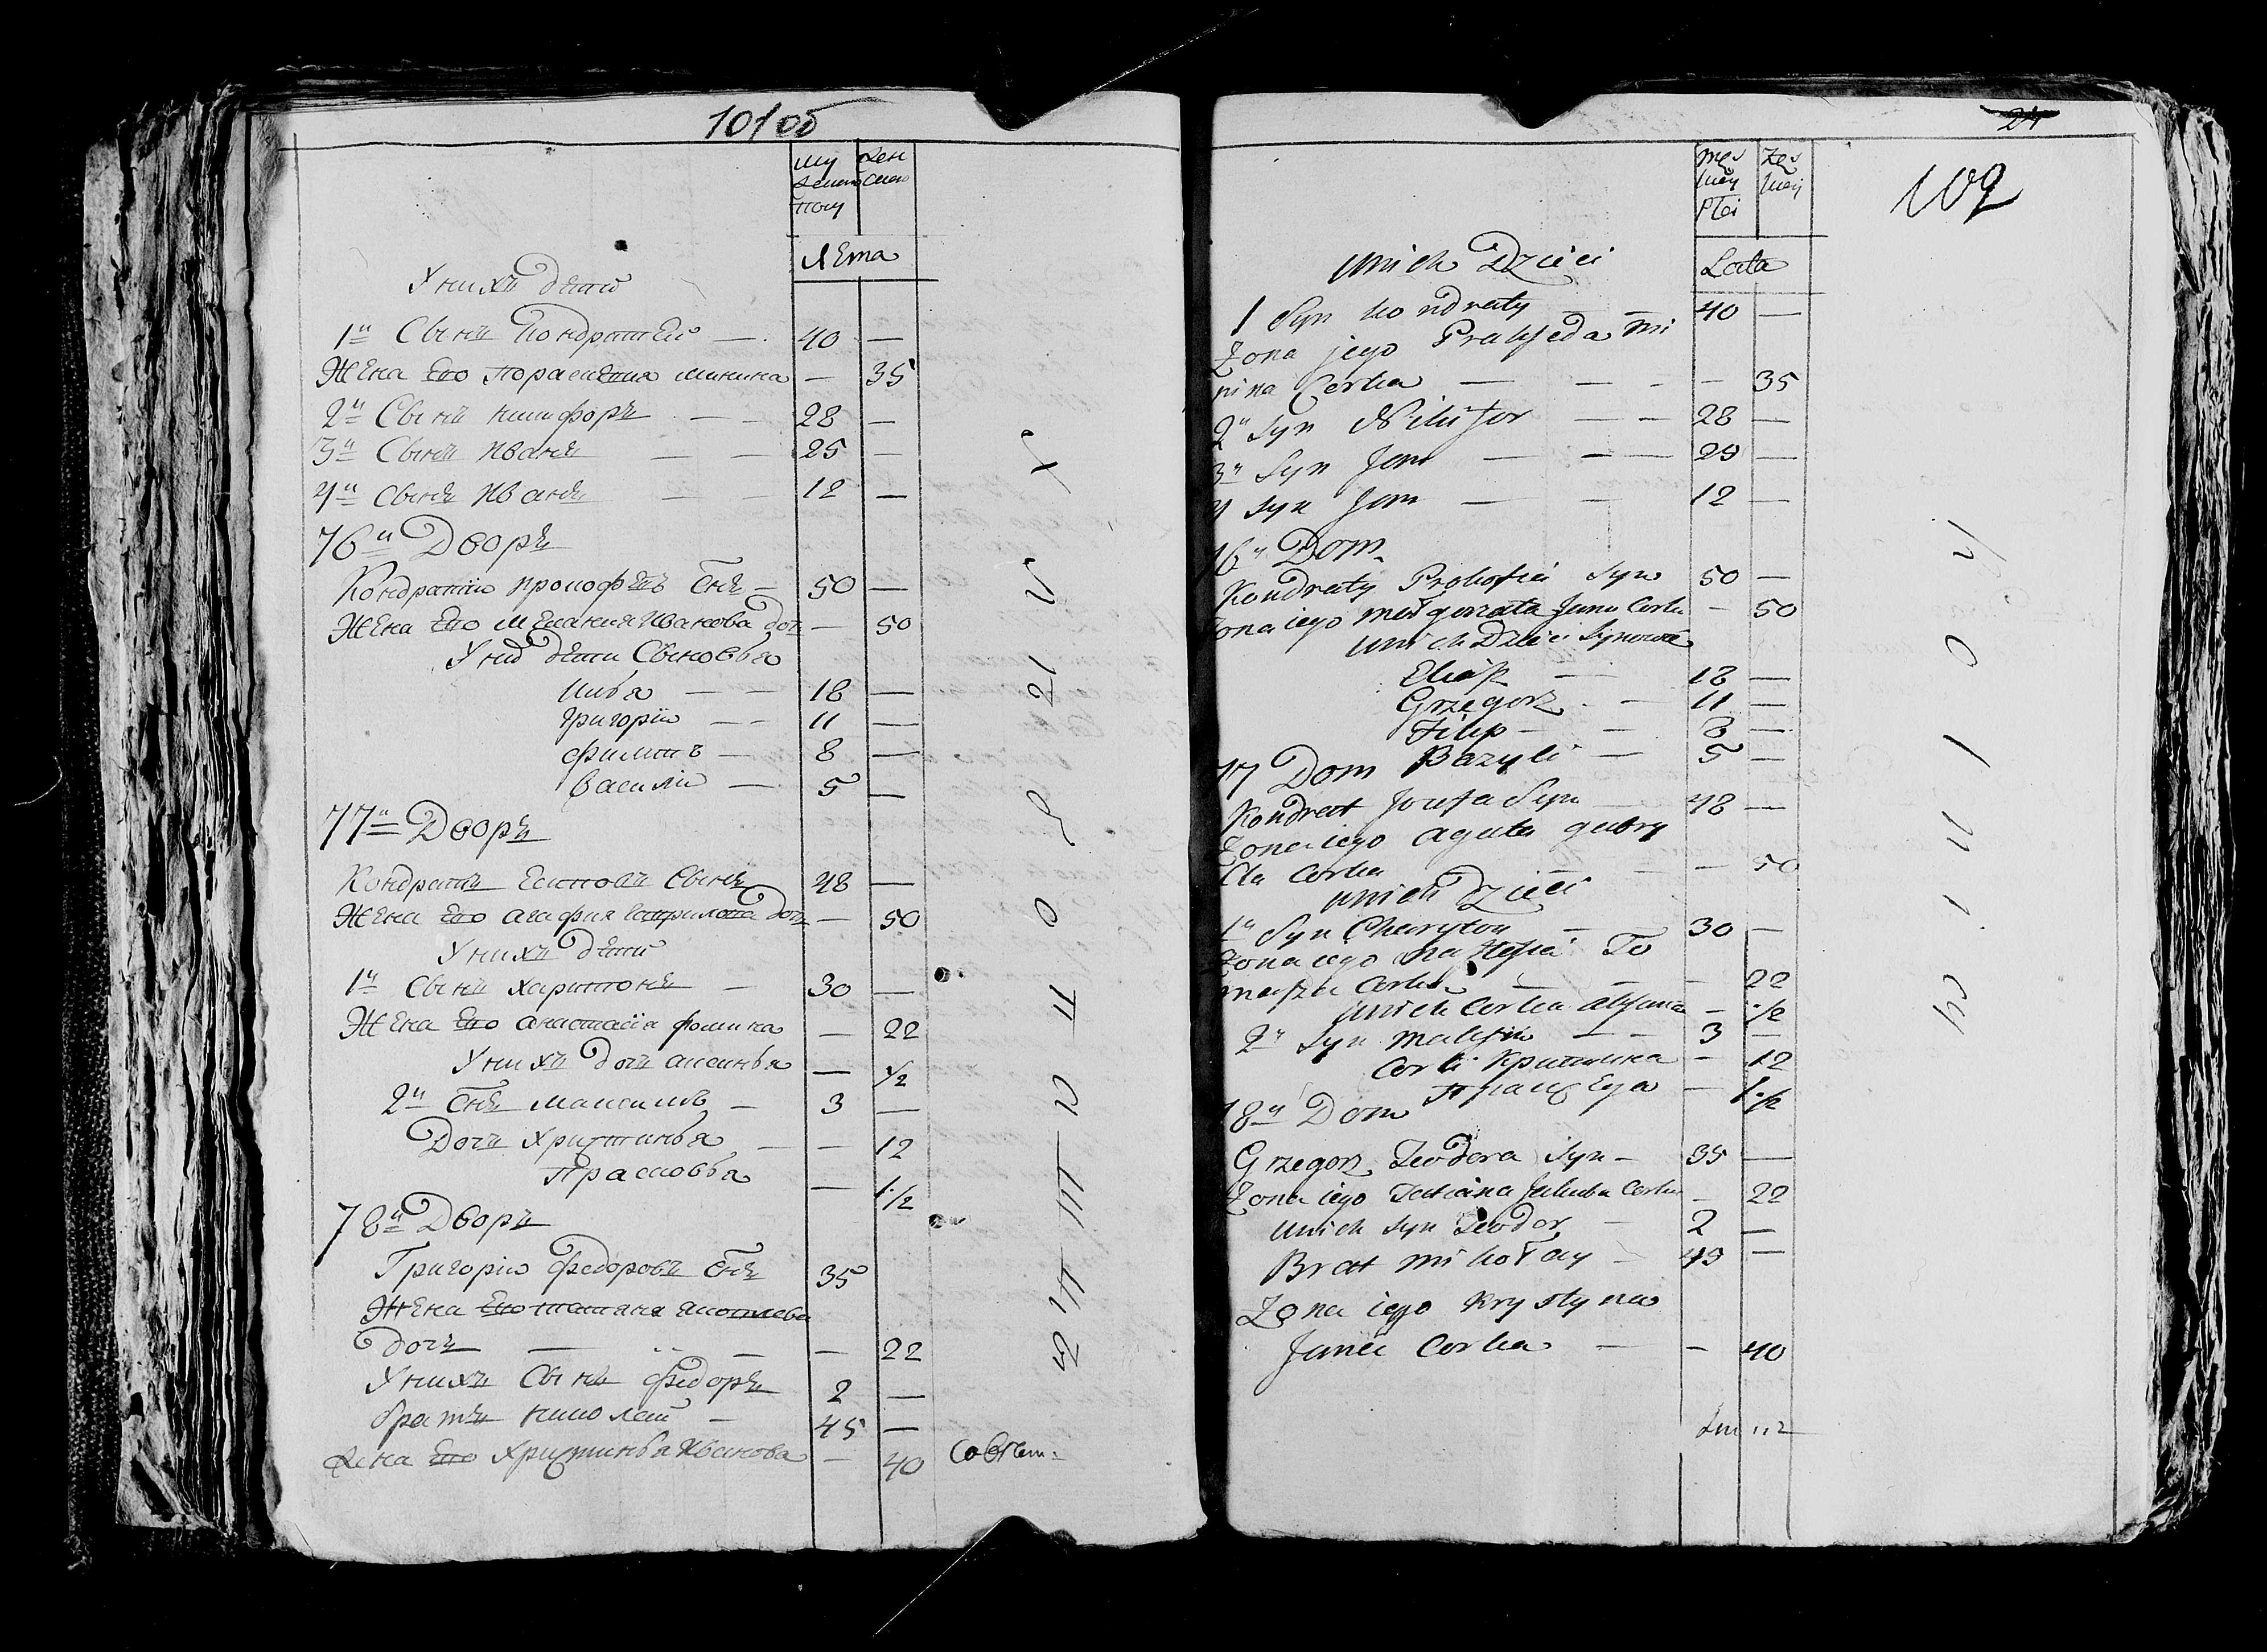 101об
му жеска полу
жен скаго
Лета
У нихъ дети
1й Сынъ Кондратей — 40 —
Жена Его Парасковия Минина — 35
2й Сынъ Никифоръ — — 28 —
3й Сынъ Иванъ — — 25 —
4й Сынъ Иванъ — — 12 —
76й Дворъ
Кондратiй Прокофевъ Снъ — 50 —
Жена Его Мелания Иванова доч — 50
У них дети Сыновья
Илья — — 18 —
Григорiй — — 11 —
Филипъ — 8 —
Василiй — 5 —
77й Дворъ
Кондратъ Есиповъ Сынъ 48 —
Жена Его Агафия Гаврилова доч — 50
У нихъ дети
1й Сынъ Харитонъ — 30 —
Жена Его Анастасiя Фомина — 22
У нихъ дочь Аксинья — 1/2
2й Снъ Максимъ — 3 —
Дочь Христинья — — 12
Прасковья — 1 1/2
78й Дворъ
Григорiй Федоровъ Снъ 35
Жена Его Татяна Яковлева
дочь — — — 22
У нихъ Сынъ Федоръ 2 —
братъ Николай — 45 —
Жена Его Христинья Иванова — 40
24
102
męs kiey płci
żeń skiey
Lata
u nich Dzieci
1 Syn Kondraty — 40 —
Zona jego Praxeda Mi
nina Corka — — — — 35
2й Syn Nikifor — — 28 —
3й Syn Jan — — 25 —
4 Syn Jan — — 12 —
76й Dom
Kondraty Prokofia Syn 50 —
Zona iego Małgorzata Jana Corka — 50
u nich Dzieci Synowie
Eliasz — 18 —
Grzegorz — 11 —
Filip — — 8 —
Bazyli — 5 —
77 Dom
Kondrat Jozefa Syn — 48 —
Zona iego Agata Gabry
ela Corka — — 50
u nich Dzieci
1й Syn Charyton — 30 —
Zona iego Nastasia To
masza Corka — — — 22
u nich Corka Axana — 1/2
2й Syn Maxim — — 3 —
Corki Криштина — 12
1 1/2
78й Dom
Grzegorz Teodora Syn — 35 —
Zona iego Tatiana Jakuba Corka — 22
u nich Syn Teodor — 2 —
Brat Mikołay — 45 —
Zona iego Krystyna
Jana Corka — — 40